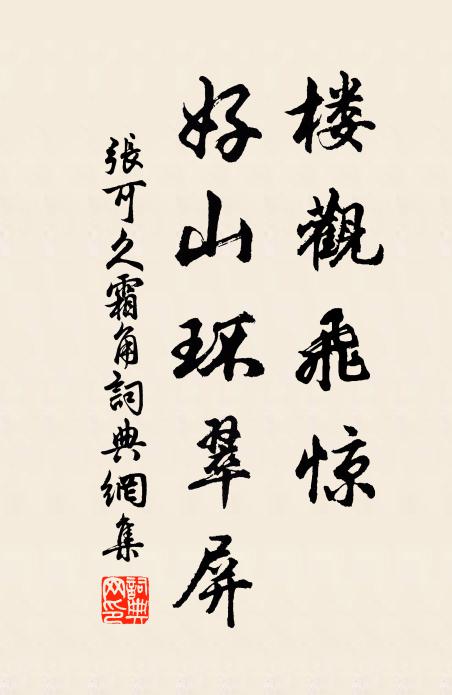 楼觀飛惊
好山环翠屏
張可久霜角詞典網集
詞典网印